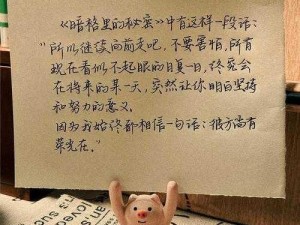 《暗格里的秘密》中有这样一段话：
“所以继续向前走吧，不要害怕，所有
现在看似不起眼的日复一日，终究会
在将来的某一天，突然让你明白坚持
和努力的意义。
因为我始终都相信一句话：彼方尚有
荣光在。”